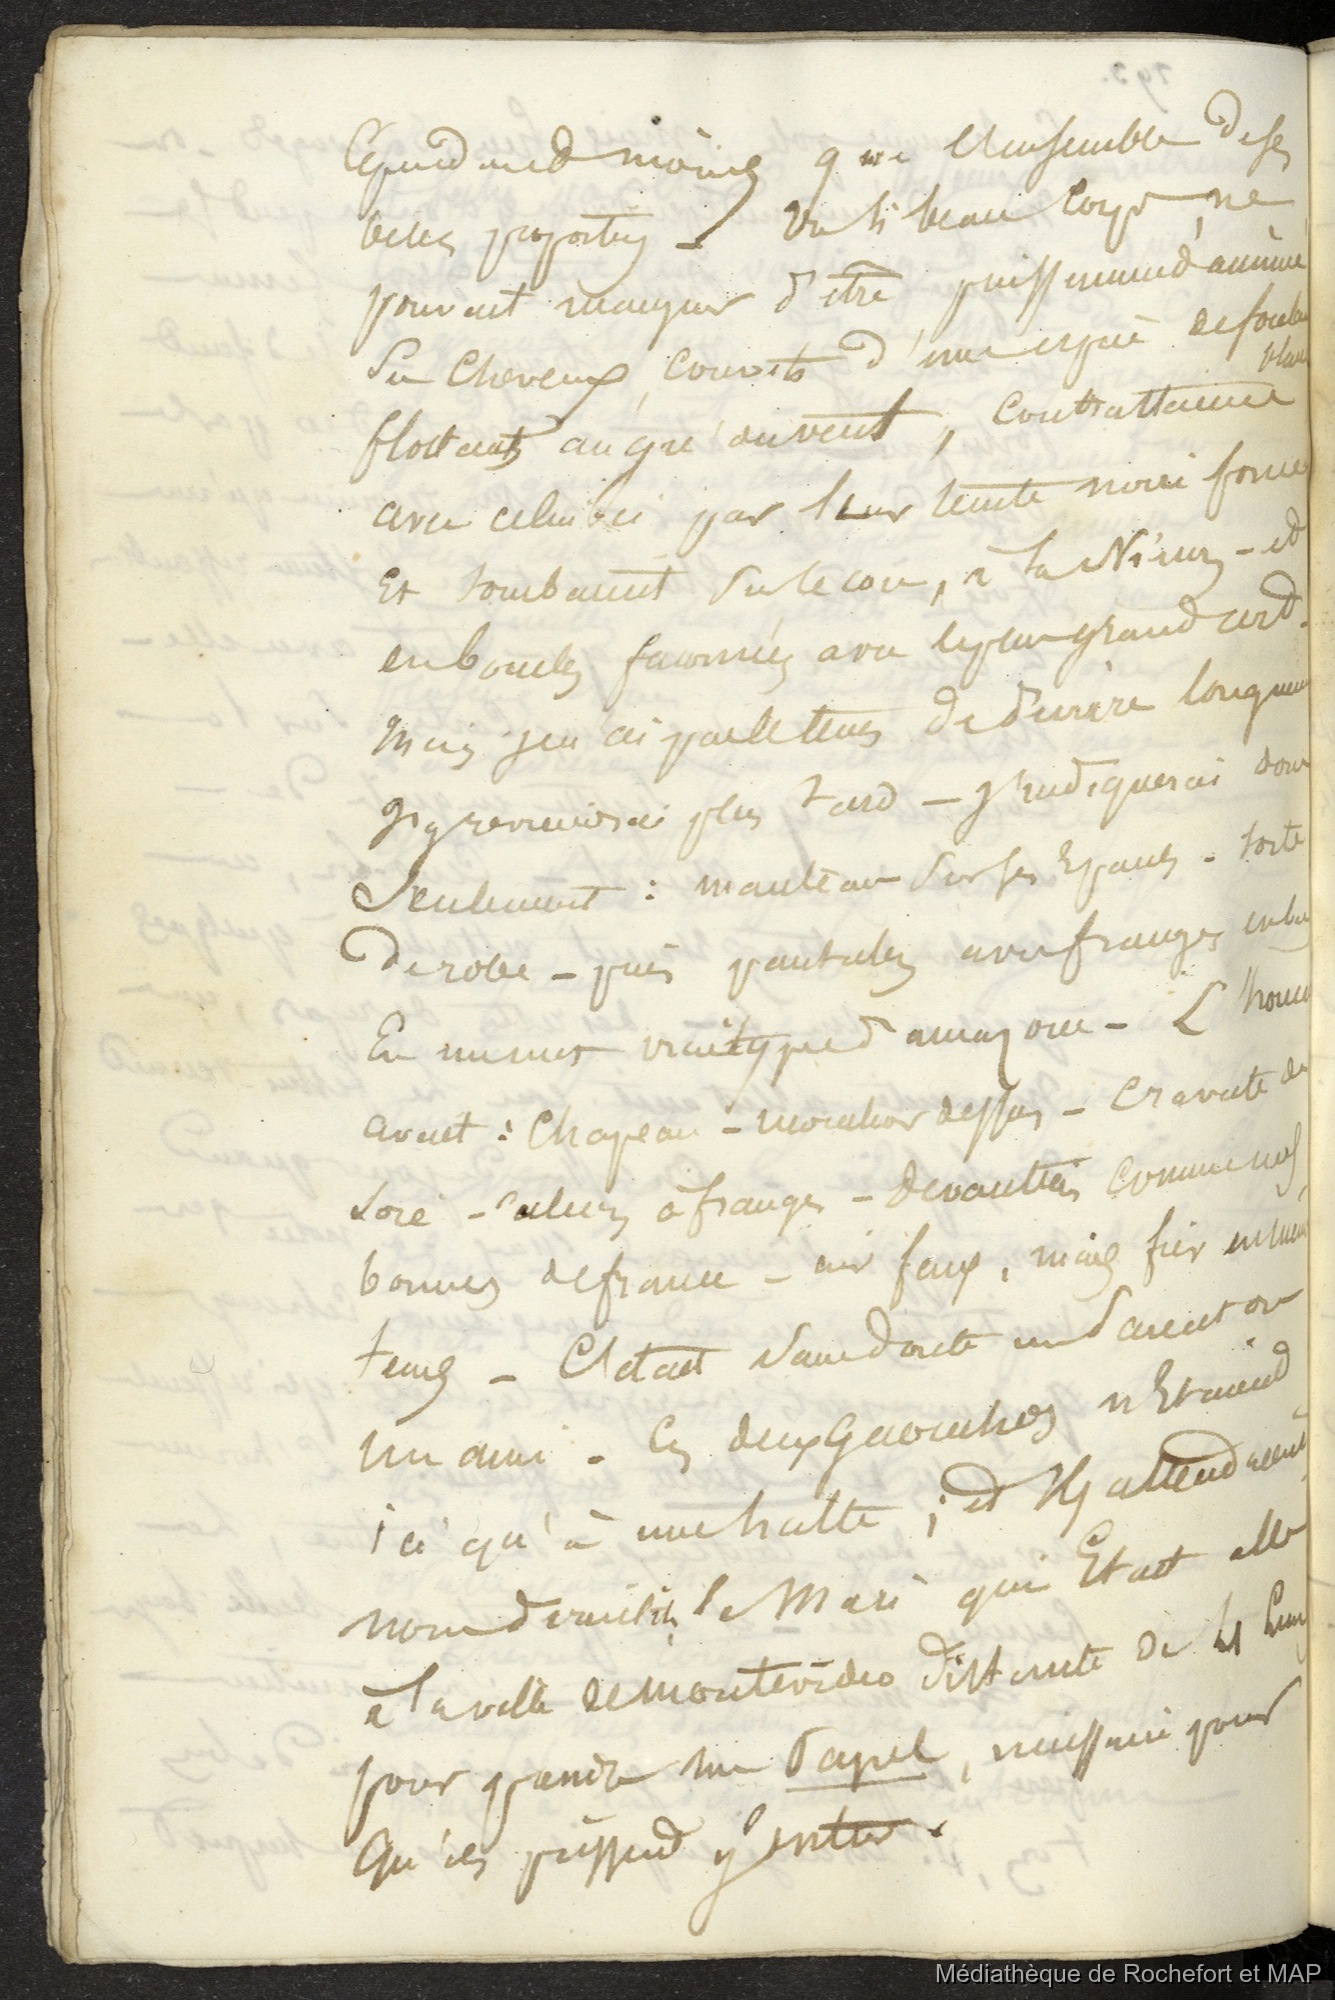 Cependant moins que l'ensemble de ses
belles proportions — Un si beau corps, ne
pouvait manquer d'être puissamment animé
Ses Cheveux, Couverts d'une espèce de foulard
blanc
flottants au gré du vent, Contrastaient
avec celui-ci par leur teinte noire foncée
Et tombaient sur le cou, à la — et
en boucles avec le plus grand art.
Mais je n'ai pas le tems de décrire longuement
J'y reviendrai plus tard — J'indiquerai donc
Seulement : manteau sur ses Epaules — sorte
de robe — puis pantalon avec franges en bas
En un mot vrai type d'amazone — L'homme
avait : Chapeau — mouchoir dessus — Cravate de
soie — à franges — devantier comme nos
bonnes de france — air faux, mais fier en même
tems — C'etait sans doute un Parent ou
un ami — Ces deux Gaouchos n'Etaient
ici qu'à une halte ; et Ils attendaient
le Mari qui Etait allé
à la ville de Montevideo distante de 4 lieues
pour prendre un Papel, nécessaire pour
Qu'ils puissent y entrer.
Médiathèque de Rochefort et MAP